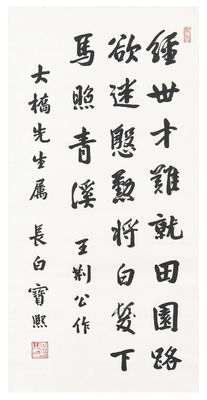 經世才難就田園路
欲迷慇懃將白髮下
馬照青溪 王荊公作
大橋先生属 長白寶熙